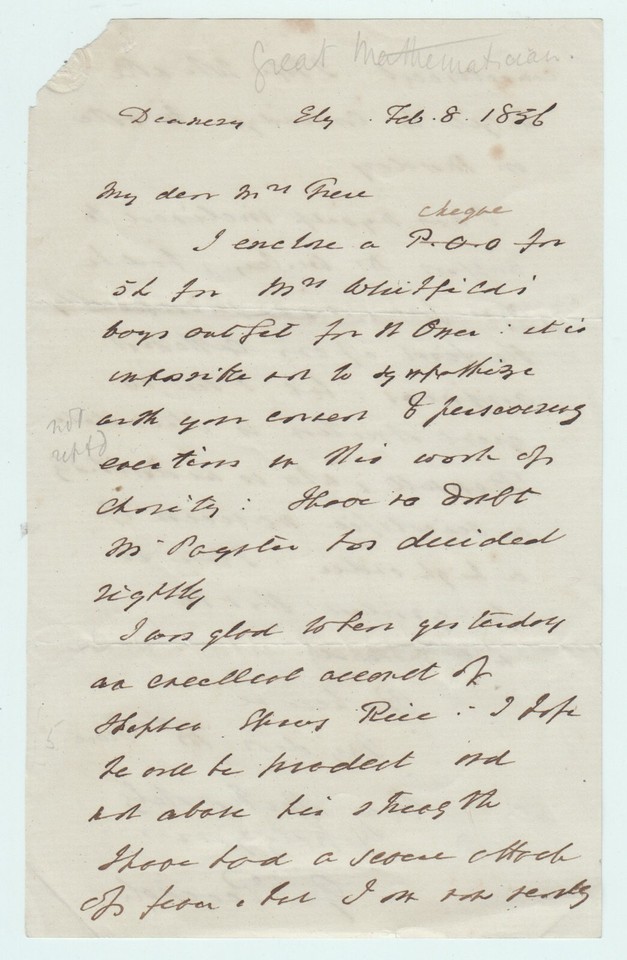 Great Mathematician.
Deanery Ely. Feb. 8. 1856
My dear Mrs Frere
cheque
I enclose a P.O.O for
5£ for Mrs Whitfield's
boys outfit for St Omer: it is
impossible not to sympathize
with your earnest & persevering
exertions in this work of
charity: I have no doubt
Mr Paynter has decided
rightly
not
rept'd
I was glad to hear yesterday
an excellent account of
Rice: I hope
he will be prudent and
not abuse his strength
I have had a severe attack
of fever, but I am now nearly